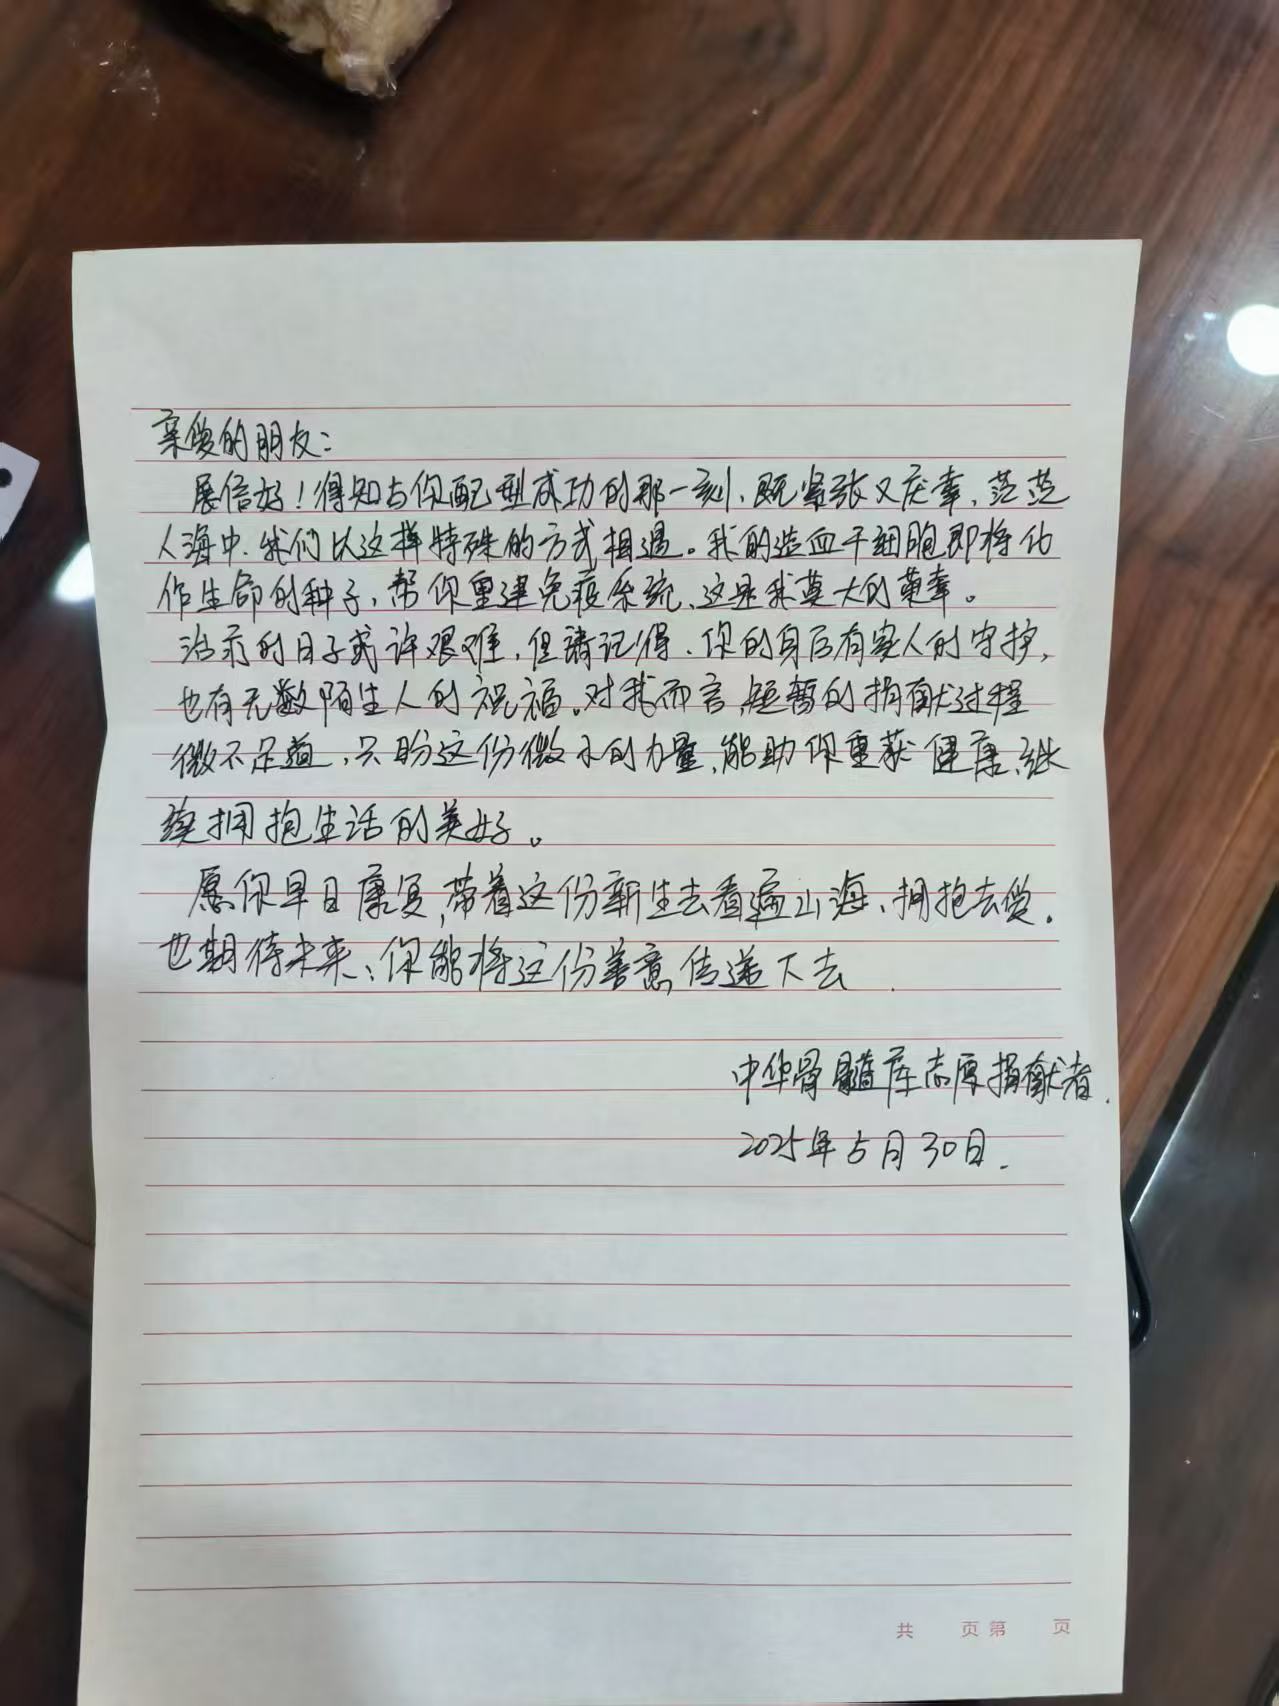 亲爱的朋友：
展信好！得知与你配型成功的那一刻、既紧张又庆幸，茫茫
人海中、我们以这样特殊的方式相遇。我的造血干细胞即将化
作生命的种子，帮你重建免疫系统、这是我莫大的荣幸。
治疗的日子或许艰难，但请记得、你的身后有家人的守护，
也有无数陌生人的祝福。对我而言，短暂的捐献过程
微不足道，只盼这份微小的力量，能助你重获健康、继
续拥抱生活的美好。
愿你早日康复，带着这份新生去看遍山海、拥抱去爱.
也期待未来：你能将这份善意传递下去.
中华骨髓库志愿捐献者.
2025年5月30日.
共 页第 页